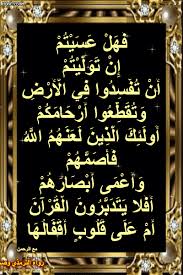 فَهَلْ عَسَيْتُمْ
إِنْ تَوَلَّيْتُمْ
أَنْ تُفْسِدُوا فِي الْأَرْضِ
وَتُقَطِّعُوا أَرْحَامَكُمْ
أُولَئِكَ الَّذِينَ لَعَنَهُمُ اللَّهُ
فَأَصَمَّهُمْ
وَأَعْمَى أَبْصَارَهُمْ
أَفَلَا يَتَدَبَّرُونَ الْقُرْآنَ
أَمْ عَلَى قُلُوبٍ أَقْفَالُهَا
مع الرحمن
رواه الترمذي